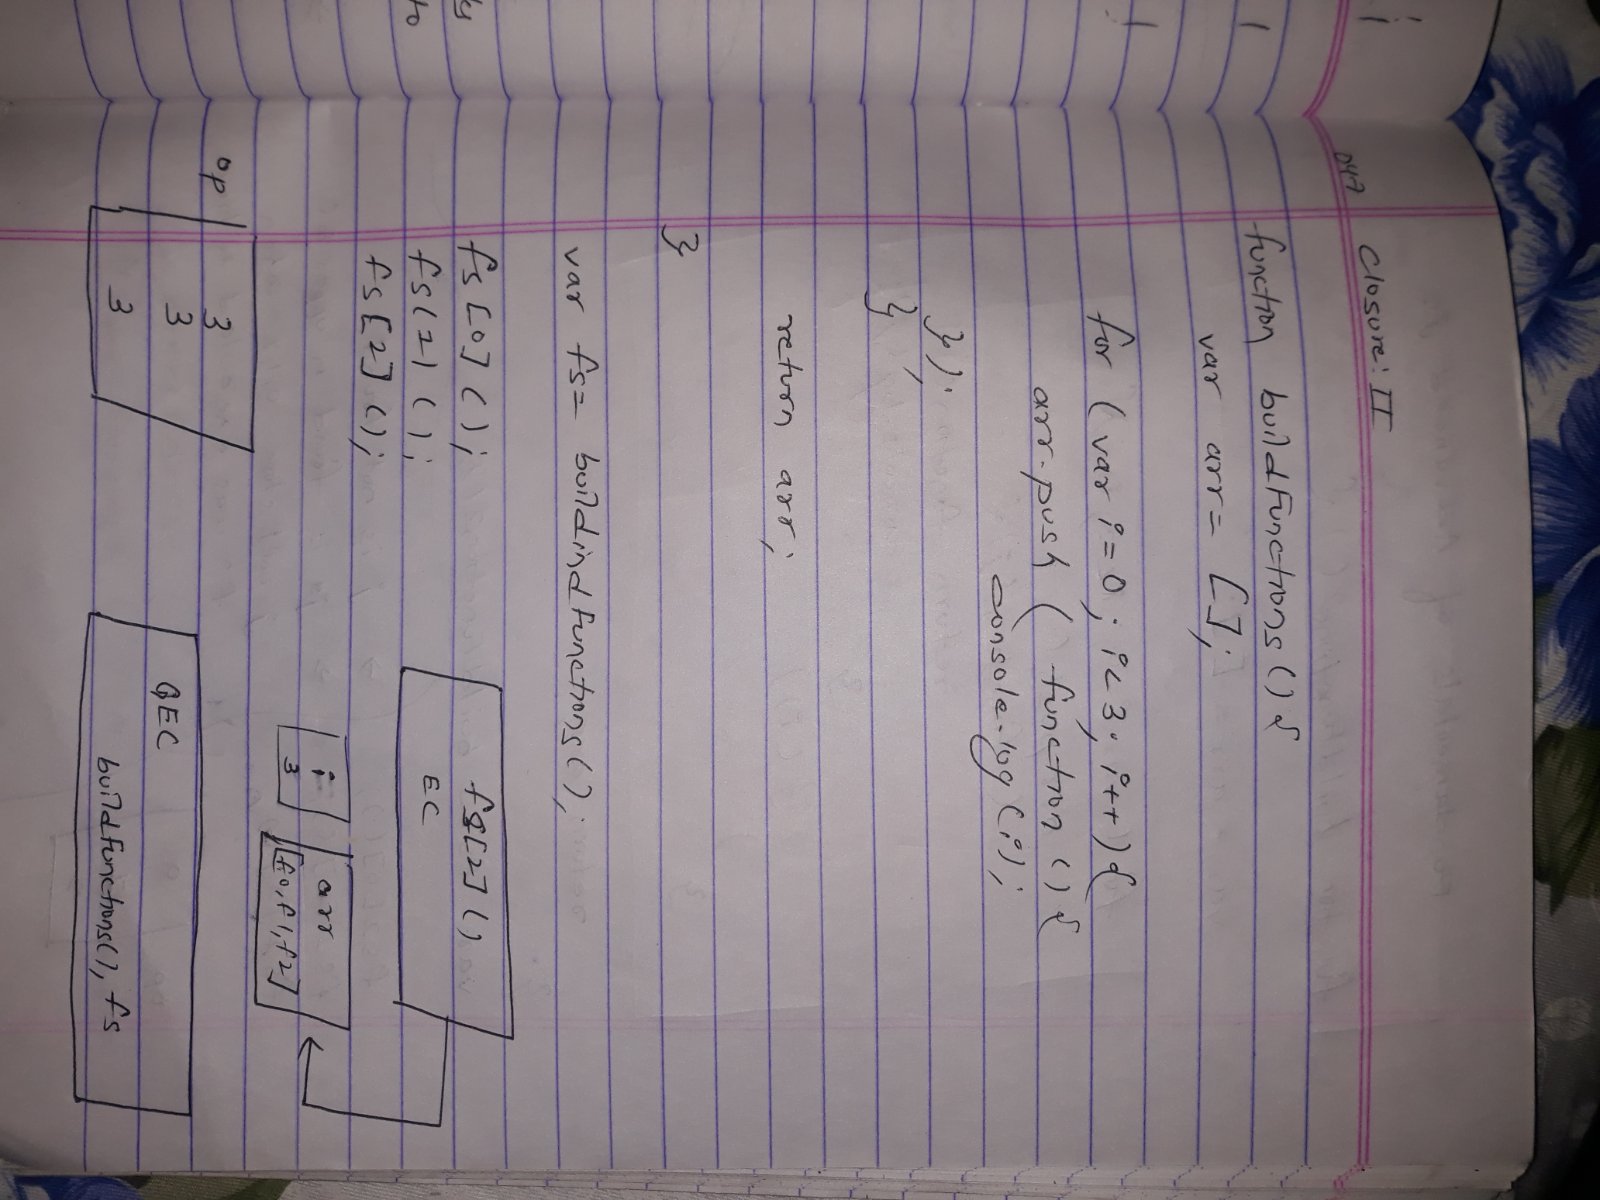 Closure: II
047
function buildFunctions () {
var arr = [];
for (var i = 0; i < 3; i++) {
arr.push ( function () {
console.log (i);
});
}
return arr;
}
var fs = buildindFunctions ();
fs [0] ();
fs (1) ();
fs [2] ();
fs[2] ()
EC
i
3
arr
[f0, f1, f2]
op
3
3
3
GEC
buildFunctions(), fs